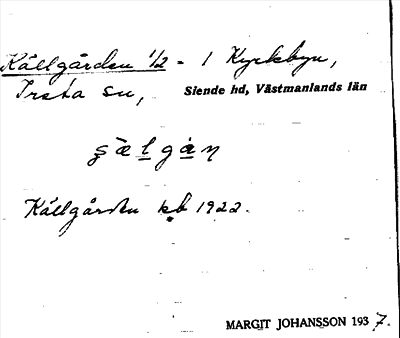 Källgården 1/2 - 1 Kyrkbyn,
Irsta sn, Siende hd, Västmanlands län
ʂälgåṇ
Källgården kb 1922.
MARGIT JOHANSSON 1937.